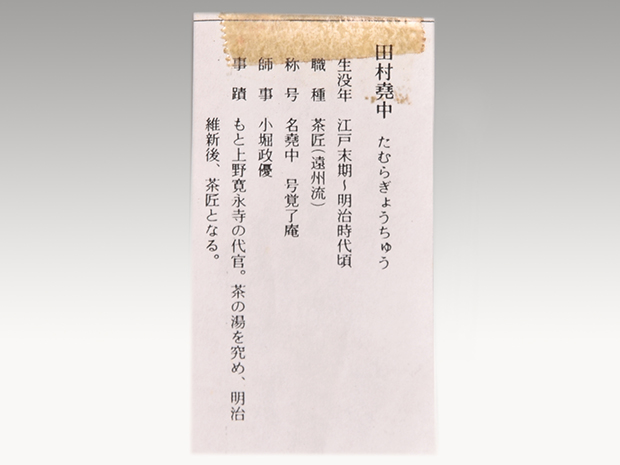 田村堯中　たむらぎょうちゅう
生没年　江戸末期～明治時代頃
職種　茶匠（遠州流）
称号　名堯中　号覚了庵
師事　小堀政優
事蹟　もと上野寛永寺の代官。茶の湯を究め、明治
維新後、茶匠となる。